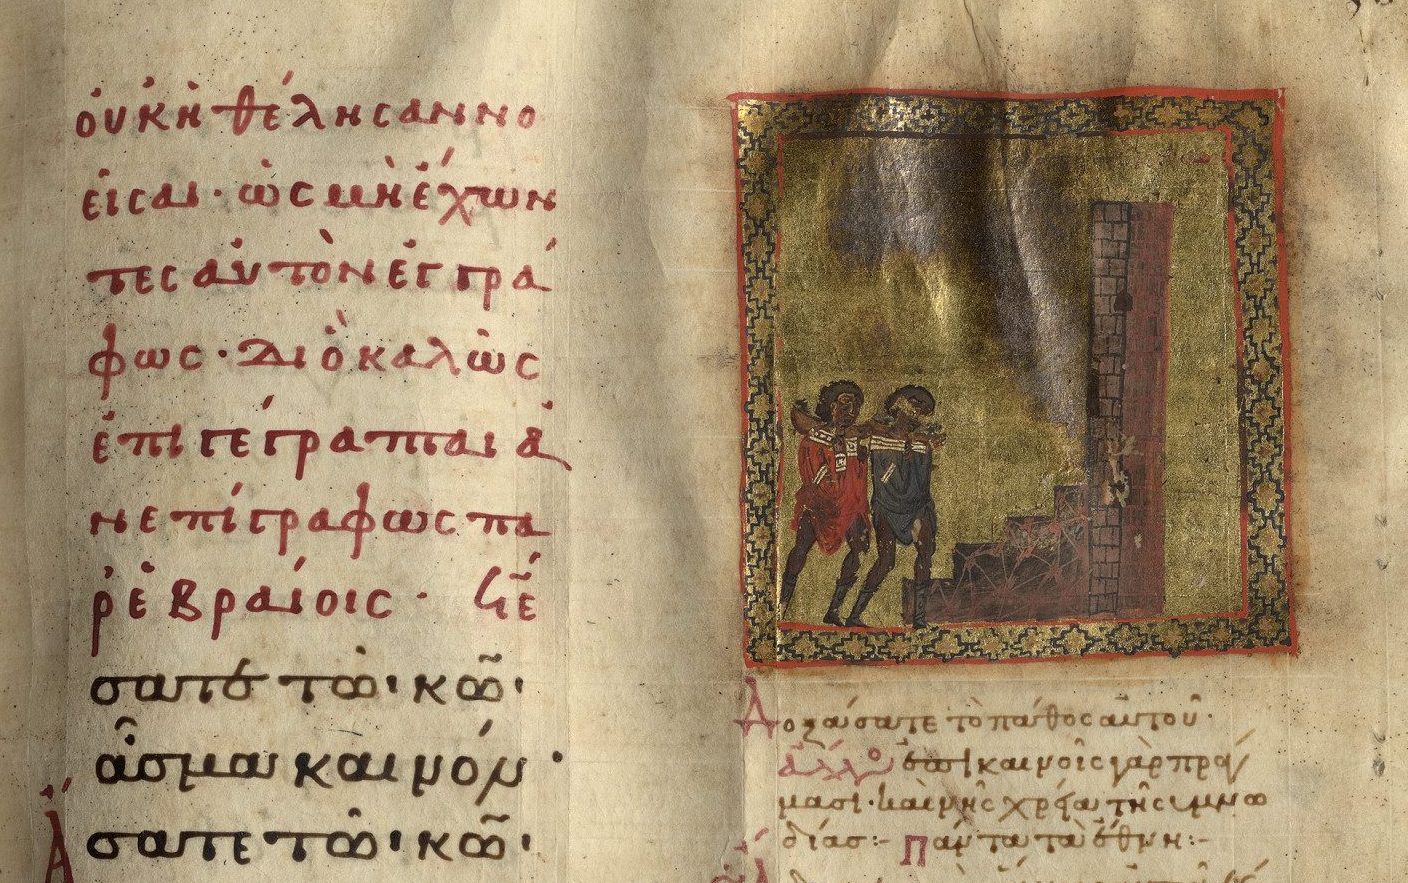 οὐκ ἠθέλησαν νο
εῖσαι· ὡς μὴ ἔχων
τες αὐτὸν ἐγγρά
φως· διὸ καλῶς
ἐπιγέγραπται ἀ
νεπίγραφως πα
ρ ἑβραίοις·
σατε τῶ κῶ·
ἆσμα καινόν·
ἄσατε τῶ κῶ·
Δοξάσατε τὸ πάθος αὐτοῦ·
ἄλλο καινοῖς γὰρ πρά
μασι· καινῆς χρεία τῆς ὑμνω
δίας:- Πάντα τὰ ἔθνη:-